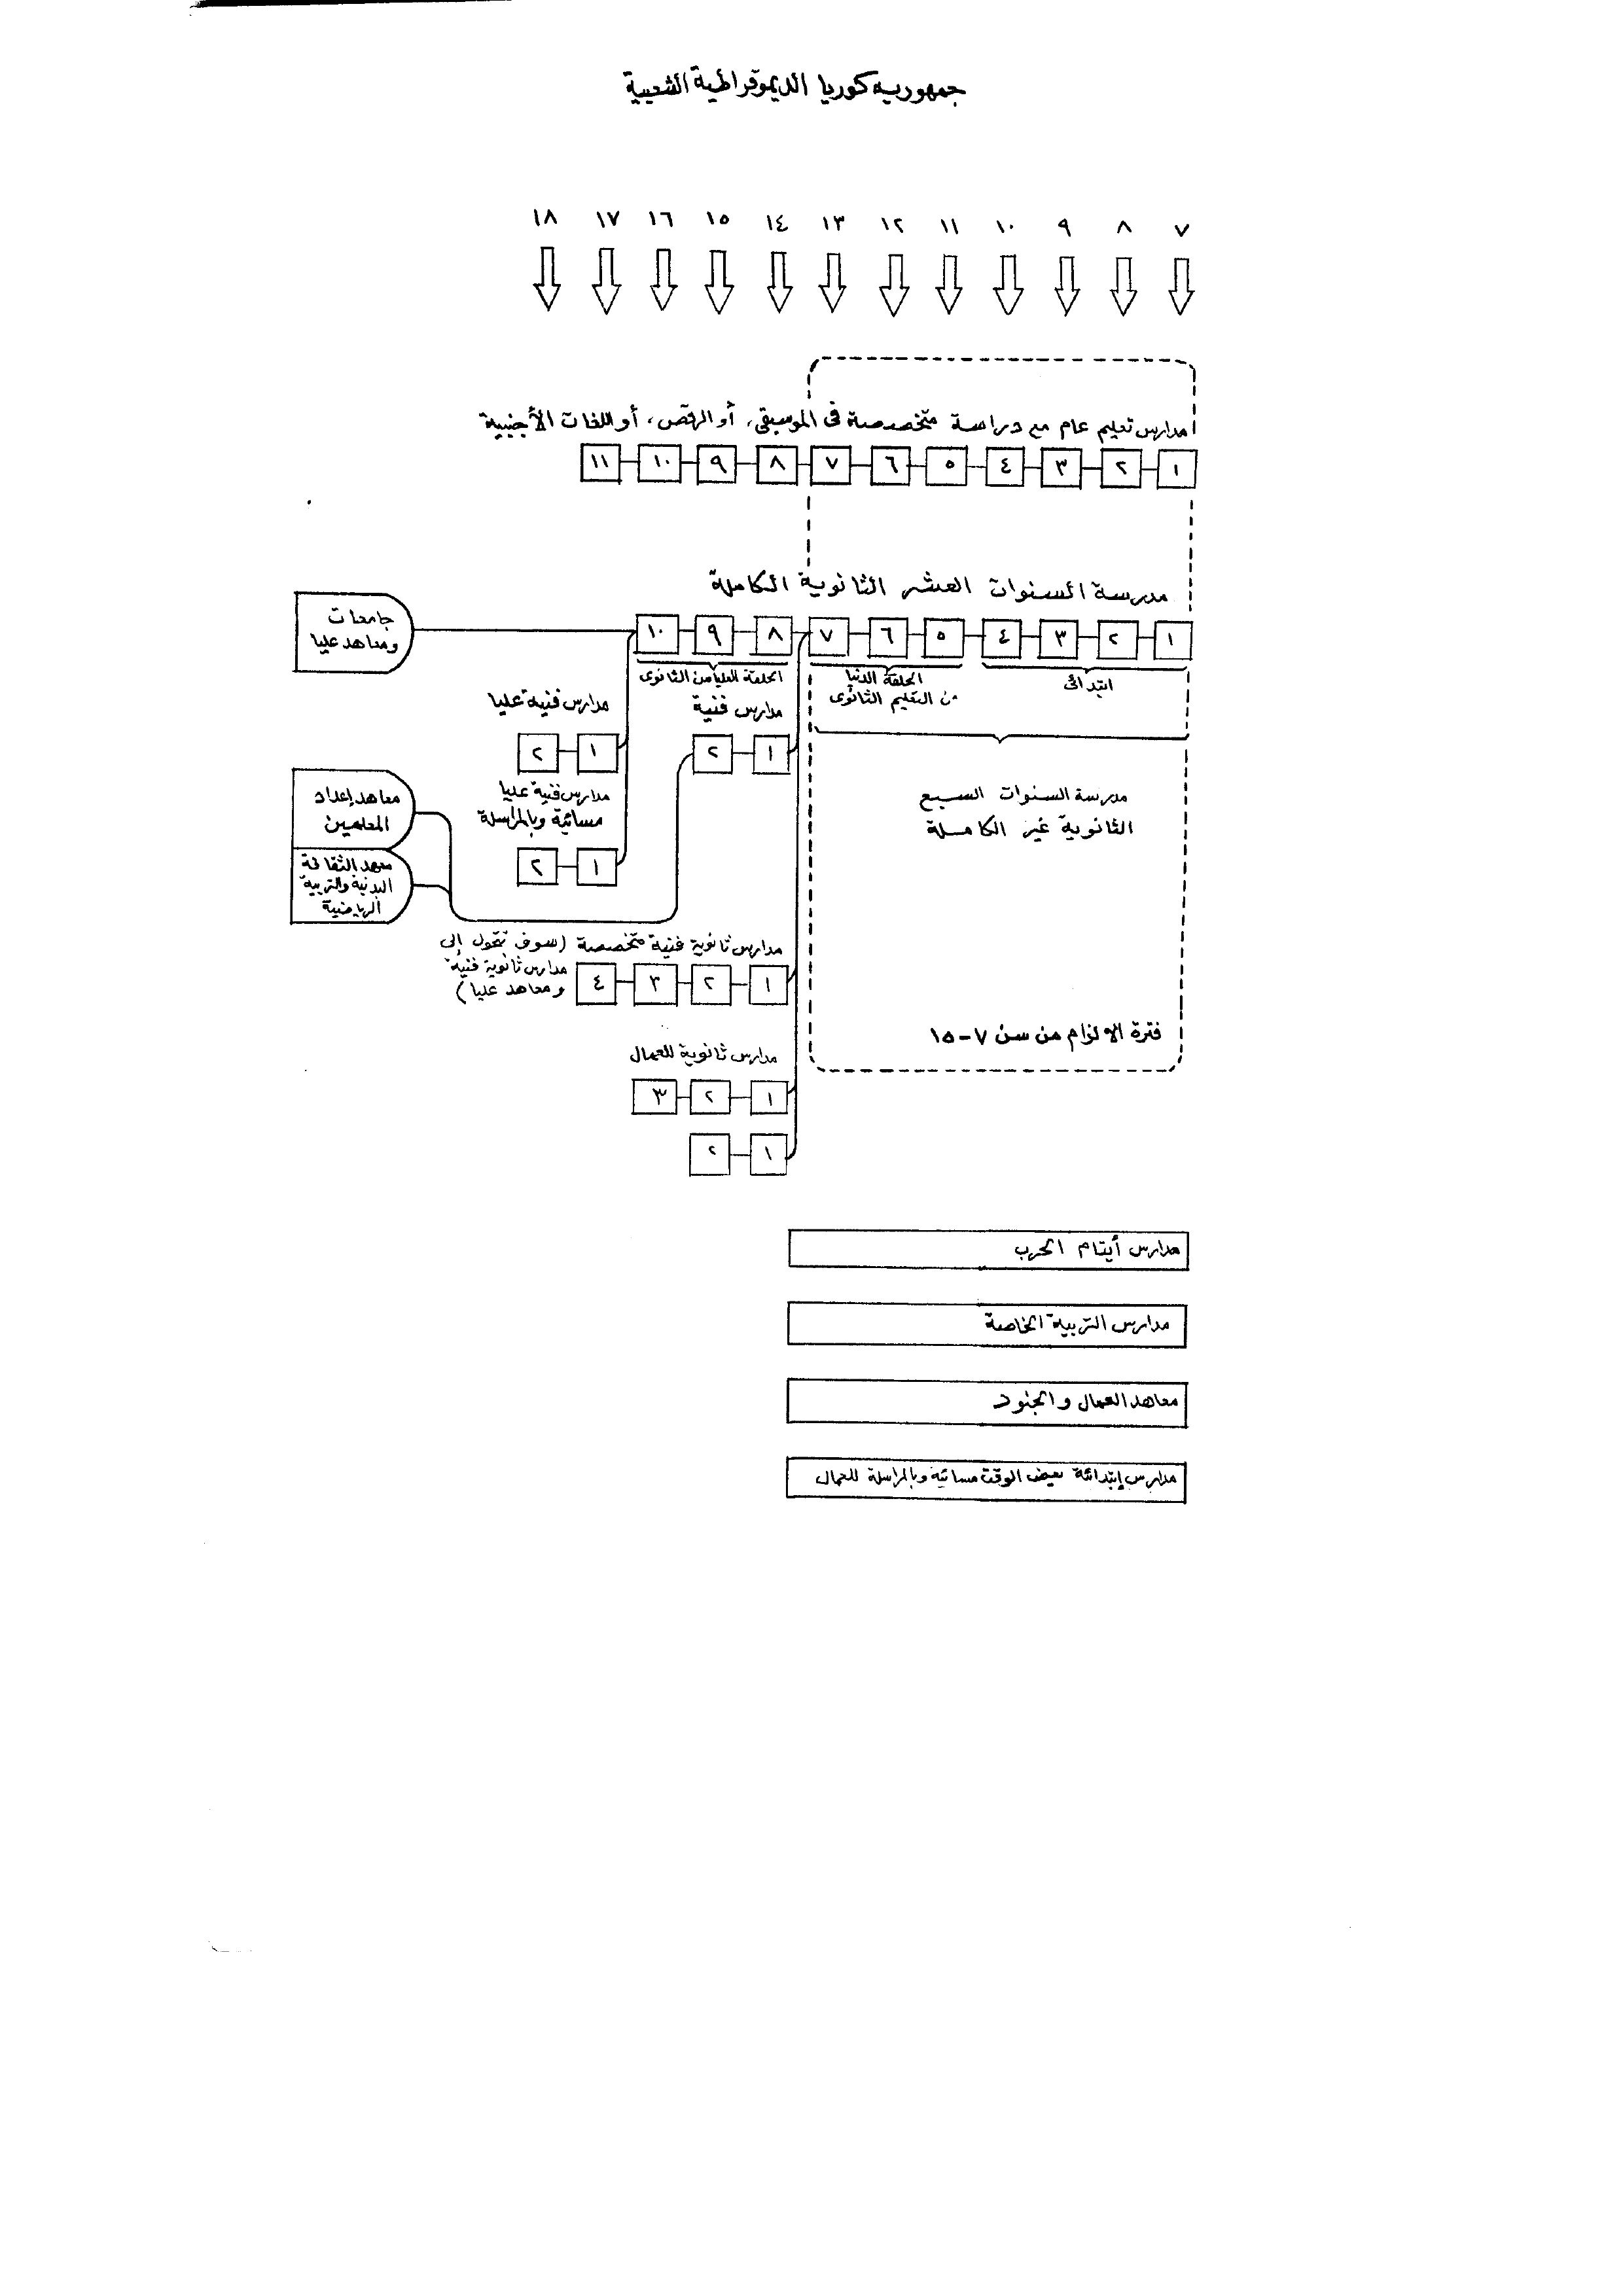 جمهورية كوريا الديموقراطية الشعبية
٧ ٨ ٩ ١٠ ١١ ١٢ ١٣ ١٤ ١٥ ١٦ ١٧ ١٨
مدارس تعليم عام مع دراسة متخصصة فى الموسيقى، أو الرقص، أو اللغات الأجنبية
١ ٢ ٣ ٤ ٥ ٦ ٧ ٨ ٩ ١٠ ١١
مدرسة السنوات العشر الثانوية الكاملة
١ ٢ ٣ ٤ ٥ ٦ ٧ ٨ ٩ ١٠
جامعات
ومعاهد عليا
ابتدائى
الحلقة الدنيا
من التعليم الثانوى
الحلقة العليا من الثانوى
مدارس فنية
١ ٢
مدارس فنية عليا
١ ٢
مدارس فنية عليا
مسائية وبالمراسلة
١ ٢
معاهد إعداد
المعلمين
معهد الثقافة
البدنية والتربية
الرياضية
مدرسة السنوات السبع
الثانوية غير الكاملة
مدارس ثانوية فنية متخصصة (سوف تتحول إلى
مدارس ثانوية فنية
ومعاهد عليا)
١ ٢ ٣ ٤
فترة الالزام من سن ٧-١٥
مدارس ثانوية للعمال
١ ٢ ٣
١ ٢
مدارس أيتام الحرب
مدارس التربية الخاصة
معاهد العمال والجنود
مدارس إبتدائة بعض الوقت مسائية وبالمراسلة للعمال